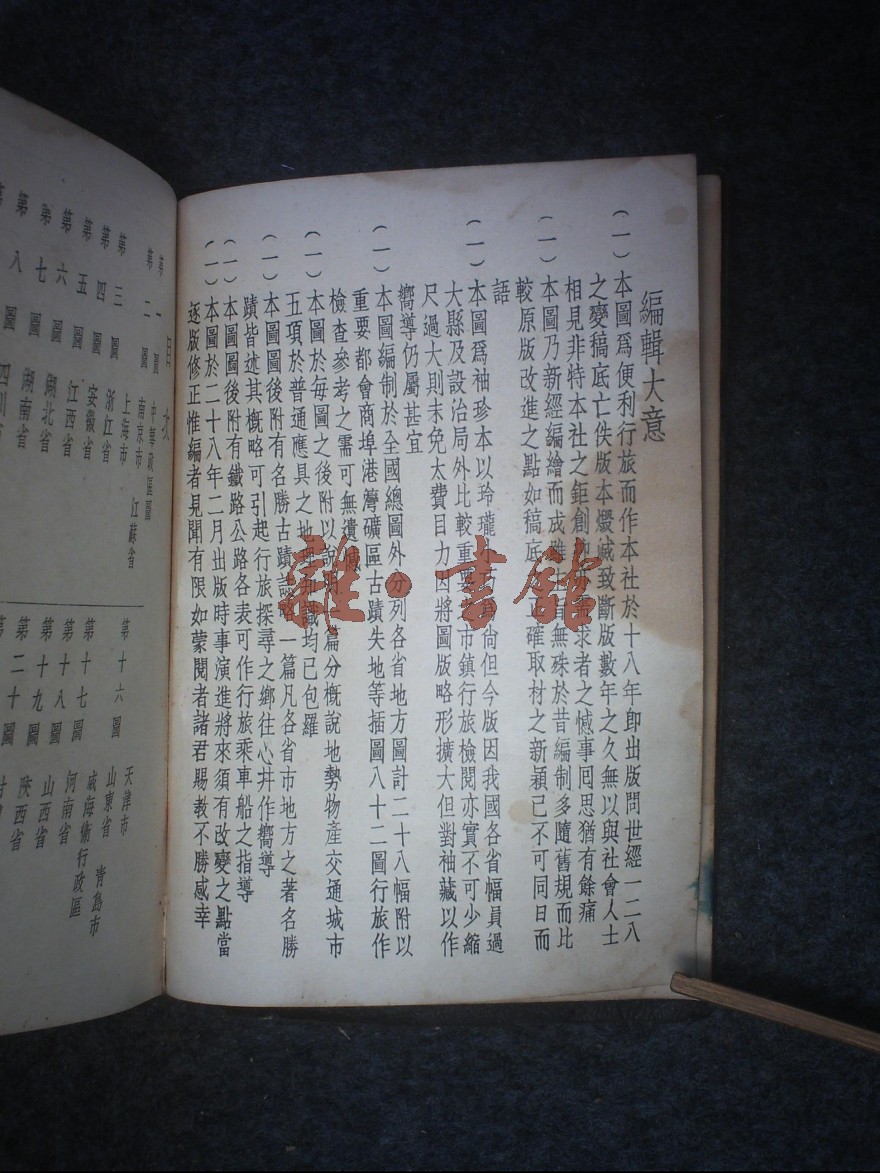 編輯大意
(一)本圖爲便利行旅而作本社於十八年卽出版問世經一二八
之變稿底亡佚版本燬滅致斷版數年之久無以與社會人士
相見非特本社之鉅創 求者之憾事囘思猶有餘痛
(一)本圖乃新經編繪而成 有無殊於昔編制多隨舊規而比
較原版改進之點如稿底 正確取材之新穎已不可同日而
語
(一)本圖爲袖珍本以玲瓏 尚但今版因我國各省幅員過
大縣及設治局外比較重要 市鎮行旅檢閱亦實不可少縮
尺過大則未免太費目力因將圖版略形擴大但對袖藏以作
嚮導仍屬甚宜
(一)本圖編制於全國總圖外分列各省地方圖計二十八幅附以
重要都會商埠港灣礦區古蹟失地等插圖八十二圖行旅作
檢查參考之需可無遺憾
(一)本圖於每圖之後附以說明一篇分槪說地勢物產交通城市
五項於普通應具之地理知識均已包羅
(一)本圖圖後附有名勝古蹟誌略一篇凡各省市地方之著名勝
蹟皆述其槪略可引起行旅探尋之鄉往心幷作嚮導
(一)本圖圖後附有鐵路公路各表可作行旅乘車船之指導
(一)本圖於二十八年二月出版時事演進將來須有改變之點當
逐版修正惟編者見聞有限如蒙閱者諸君賜敎不勝感幸
雜·書館
目次
第一圖 中華政區圖
第二圖 南京市 江蘇省
上海市
第三圖 浙江省
第四圖 安徽省
第五圖 江西省
第六圖 湖北省
第七圖 湖南省
第八圖 四川
第十六圖 天津市
山東省 青島市
威海衛行政區
第十七圖 河南省
第十八圖 山西省
第十九圖 陝西省
第二十圖